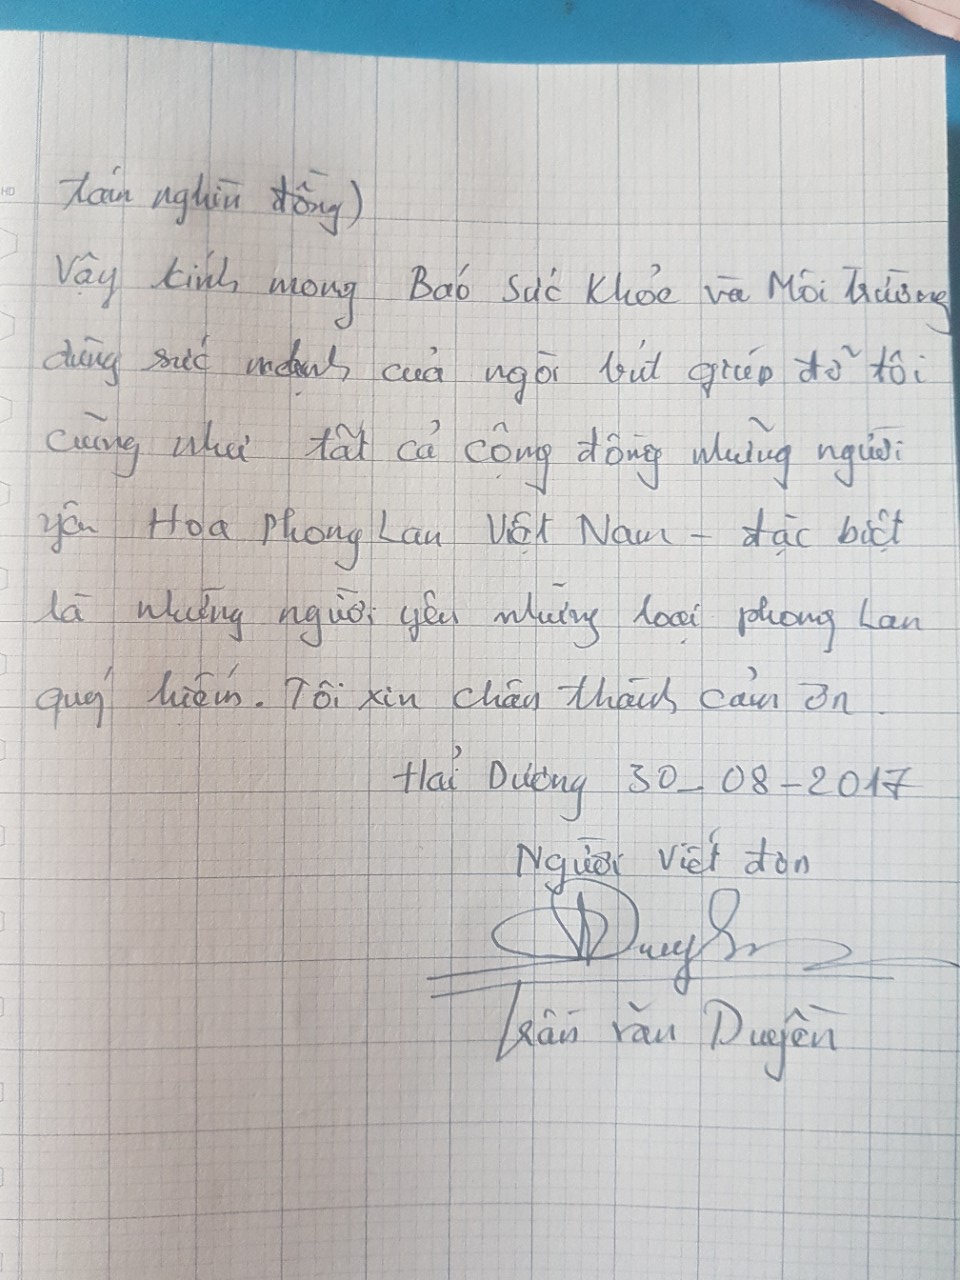 tám nghìn đồng)
Vậy kính mong Báo Sức Khỏe và Môi Trường
dùng sức mạnh của ngòi bút giúp đỡ tôi
cũng như tất cả cộng đồng những người
yêu Hoa Phong Lan Việt Nam - đặc biệt
là những người yêu những loại phong Lan
quý hiếm. Tôi xin chân thành cảm ơn.
Hải Dương 30-08-2017
Người viết đơn
Duyền
Trần Văn Duyền